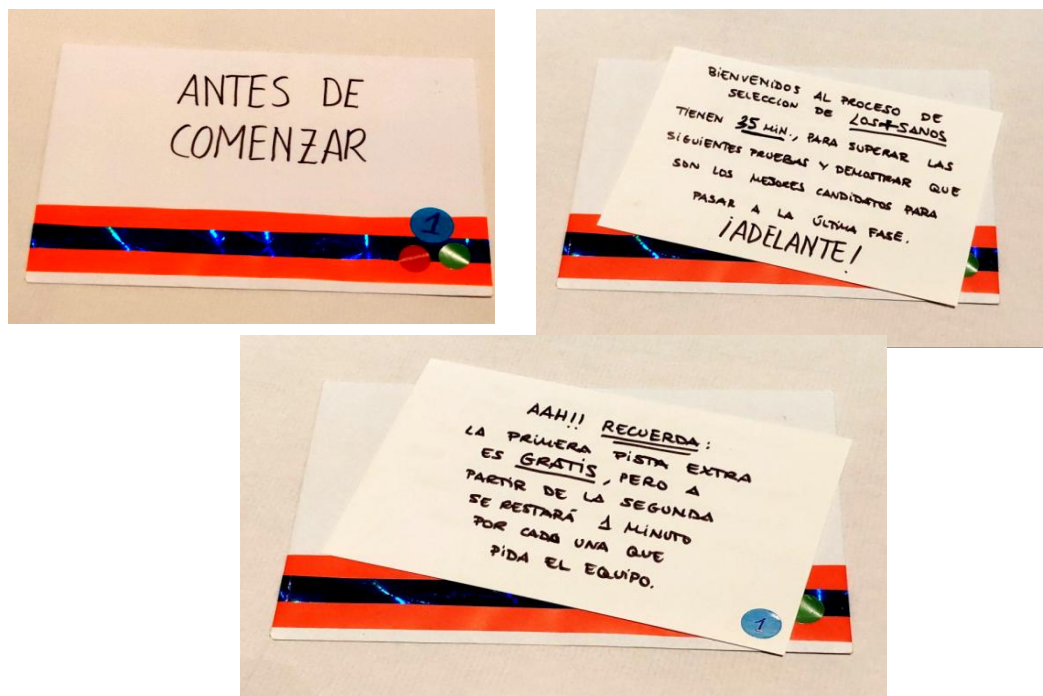 ANTES DE
COMENZAR
1
BIENVENIDOS AL PROCESO DE
SELECCION DE LOS+SANOS
TIENEN 35 MIN., PARA SUPERAR LAS
SIGUIENTES PRUEBAS Y DEMOSTRAR QUE
SON LOS MEJORES CANDIDATOS PARA
PASAR A LA ÚLTIMA FASE.
¡ADELANTE!
AAH!! RECUERDA:
LA PRIMERA PISTA EXTRA
ES GRATIS, PERO A
PARTIR DE LA SEGUNDA
SE RESTARÁ 1 MINUTO
POR CADA UNA QUE
PIDA EL EQUIPO.
1